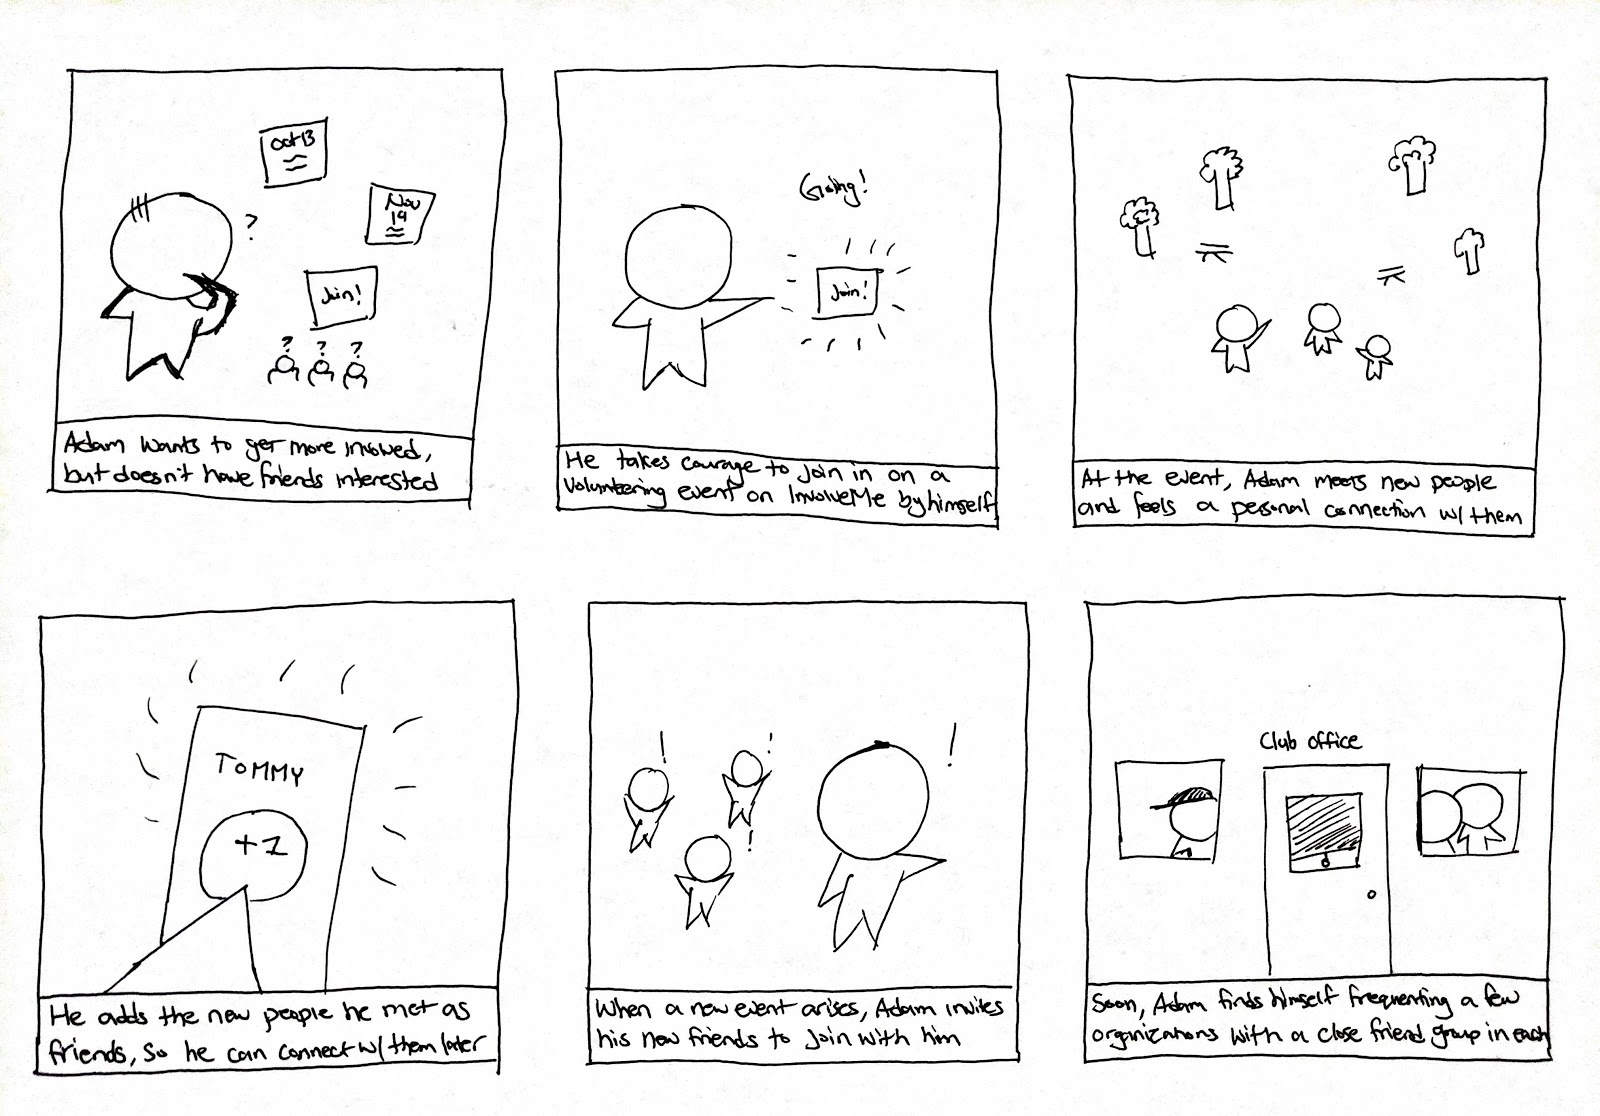 Oct 13
?
Nov
19
Join!
? ? ?
Adam wants to get more involved,
but doesn't have friends interested
Going!
Join!
He takes courage to join in on a
volunteering event on InvolveMe by himself
At the event, Adam meets new people
and feels a personal connection w/ them
TOMMY
+1
He adds the new people he met as
friends, so he can connect w/ them later
! ! !
!
When a new event arises, Adam invites
his new friends to join with him
Club office
Soon, Adam finds himself frequenting a few
organizations with a close friend group in each